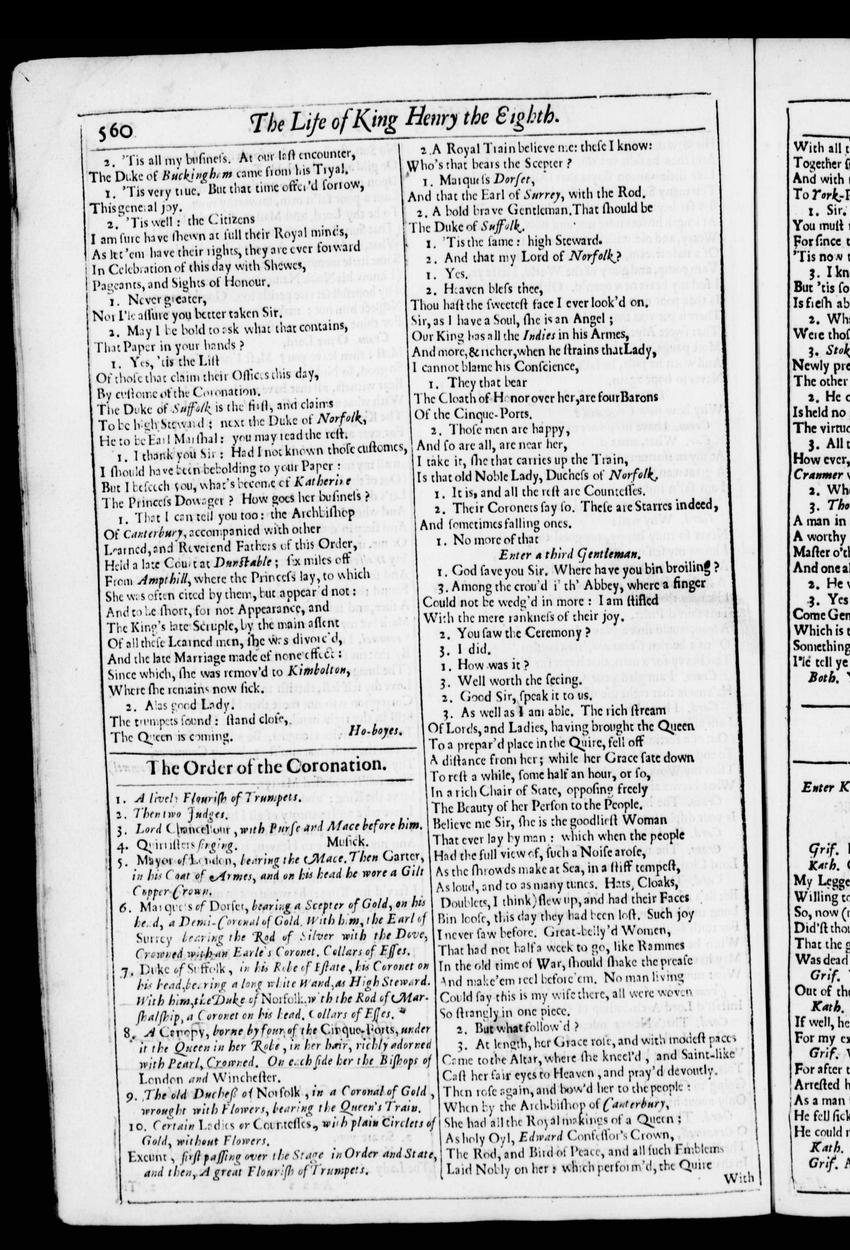 560 The Life of King Henry the Eighth.
2. 'Tis all my businesſs. At our laſt encounter,
The Duke of Buckingham came from his Tryal.
1. 'Tis very true. But that time offer'd ſorrow,
This general joy.
2. 'Tis well: the Citizens
I am ſure have ſhewn at full their Royal minds,
As let'em have their rights, they are ever forward
In Celebration of this day with Shewes,
Pageants, and Sights of Honour.
1. Never greater,
Nor I'le aſſure you better taken Sir.
2. May I be bold to ask what that contains,
That Paper in your hands?
1. Yes, 'tis the Liſt
Of thoſe that claim their Offices this day,
By cuſtome of the Coronation.
The Duke of Suffolk is the firſt, and claims
To be high Steward; next the Duke of Norfolk,
He to be Earl Marſhal: you may read the reſt.
1. I thank you Sir: Had I not known thoſe cuſtomes,
I ſhould have been beholding to your Paper:
But I beſeech you, what's become of Katherine
The Princeſs Dowager? How goes her buſineſs?
1. That I can tell you too: the Archbiſhop
Of Canterbury, accompanied with other
Learned, and Reverend Fathers of this Order,
Held a late Court at Dunſtable; ſix miles off
From Ampthill, where the Princeſs lay, to which
She was often cited by them, but appear'd not:
And to be ſhort, for not Appearance, and
The King's late Scruple, by the main aſſent
Of all theſe Learned men, ſhe was divorc'd,
And the late Marriage made of none effect:
Since which, ſhe was remov'd to Kimbolton,
Where ſhe remains now ſick.
2. Alas good Lady.
The trumpets ſound: ſtand cloſe,
The Queen is coming. Ho-boyes.
The Order of the Coronation.
1. A lively Flouriſh of Trumpets.
2. Then two Judges.
3. Lord Chancellour, with Purſe and Mace before him.
4. Quiriſters ſinging. Muſick.
5. Mayor of London, bearing the Mace. Then Garter,
in his Coat of Armes, and on his head he wore a Gilt
Copper-Crown.
6. Marqueſs of Dorſet, bearing a Scepter of Gold, on his
head, a Demi-Coronal of Gold. With him, the Earl of
Surrey bearing the Rod of Silver with the Dove,
Crowned with an Earle's Coronet. Collars of Eſſes.
7. Duke of Suffolk, in his Robe of Eſtate, his Coronet on
his head, bearing a long white Wand, as High Steward.
With him, the Duke of Norfolk, with the Rod of Mar-
ſhalſhip, a Coronet on his head. Collars of Eſſes.
8. A Canopy, borne by four of the Cinque-Ports, under
it the Queen in her Robe, in her hair, richly adorned
with Pearl, Crowned. On each ſide her the Biſhops of
London and Wincheſter.
9. The old Ducheſs of Norfolk, in a Coronal of Gold,
wrought with Flowers, bearing the Queen's Train.
10. Certain Ladies or Counteſſes, with plain Circlets of
Gold, without Flowers.
Exeunt, firſt paſſing over the Stage in Order and State,
and then, A great Flouriſh of Trumpets.
2. A Royal Train believe me: theſe I know:
Who's that bears the Scepter?
1. Marqueſs Dorſet,
And that the Earl of Surrey, with the Rod.
2. A bold brave Gentleman. That ſhould be
The Duke of Suffolk.
1. 'Tis the ſame: high Steward.
2. And that my Lord of Norfolk?
1. Yes.
2. Heaven bleſs thee,
Thou haſt the ſweeteſt face I ever look'd on.
Sir, as I have a Soul, ſhe is an Angel;
Our King has all the Indies in his Armes,
And more, & richer, when he ſtrains that Lady,
I cannot blame his Conſcience,
1. They that bear
The Cloath of Honor over her, are four Barons
Of the Cinque-Ports.
2. Thoſe men are happy,
And ſo are all, are near her,
I take it, ſhe that carries up the Train,
Is that old Noble Lady, Ducheſs of Norfolk.
1. It is, and all the reſt are Counteſſes.
2. Their Coronets ſay ſo. Theſe are Starres indeed,
And ſometimes falling ones.
1. No more of that
Enter a third Gentleman.
1. God ſave you Sir. Where have you bin broiling?
3. Among the crou'd i' th' Abbey, where a finger
Could not be wedg'd in more: I am ſtifled
With the mere rankneſs of their joy.
2. You ſaw the Ceremony?
3. I did.
1. How was it?
3. Well worth the ſeeing.
2. Good Sir, ſpeak it to us.
3. As well as I am able. The rich ſtream
Of Lords, and Ladies, having brought the Queen
To a prepar'd place in the Quire, fell off
A diſtance from her; while her Grace ſate down
To reſt a while, ſome half an hour, or ſo,
In a rich Chair of State, oppoſing freely
The Beauty of her Perſon to the People.
Believe me Sir, ſhe is the goodlieſt Woman
That ever lay by man: which when the people
Had the full view of, ſuch a Noiſe aroſe,
As the ſhrowds make at Sea, in a ſtiff tempeſt,
As loud, and to as many tunes. Hats, Cloaks,
Doublets, I think) flew up, and had their Faces
Bin looſe, this day they had been loſt. Such joy
I never ſaw before. Great-belly'd Women,
That had not half a week to go, like Rammes
In the old time of War, ſhould ſhake the preaſe
And make'em reel before'em. No man living
Could ſay this is my wife there, all were woven
So ſtrangly in one piece.
2. But what follow'd?
3. At length, her Grace roſe, and with modeſt paces
Came to the Altar, where ſhe kneel'd, and Saint-like
Caſt her fair eyes to Heaven, and pray'd devoutly.
Then roſe again, and bow'd her to the people:
When by the Arch-biſhop of Canterbury,
She had all the Royal makings of a Queen;
As holy Oyl, Edward Confeſſor's Crown,
The Rod, and Bird of Peace, and all ſuch Emblems
Laid Nobly on her: which perform'd, the Quire
With
With all
Together
And with
To York-
1. Sir.
You muſt
For ſince
'Tis now
3. I kn
But 'tis ſo
Is freſh ab
2. Wh
Were thoſ
3. Stok
Newly pre
The other
2. He
Is held no
The virtu
3. All
How ever,
Cranmer
2. Wh
3. Tho
A man in
A worthy
Maſter o'th
And one al
2. He
3. Yes
Come Gen
Which is
Something
I'le tell ye
Both.
Enter K
Grif.
Kath.
My Legge
Willing to
So, now (
Did'ſt thou
That the
Was dead
Grif.
Out of the
Kath.
If well, he
For my ex
Grif.
For after
Arreſted
As a man
He fell ſick
He could
Kath.
Grif.